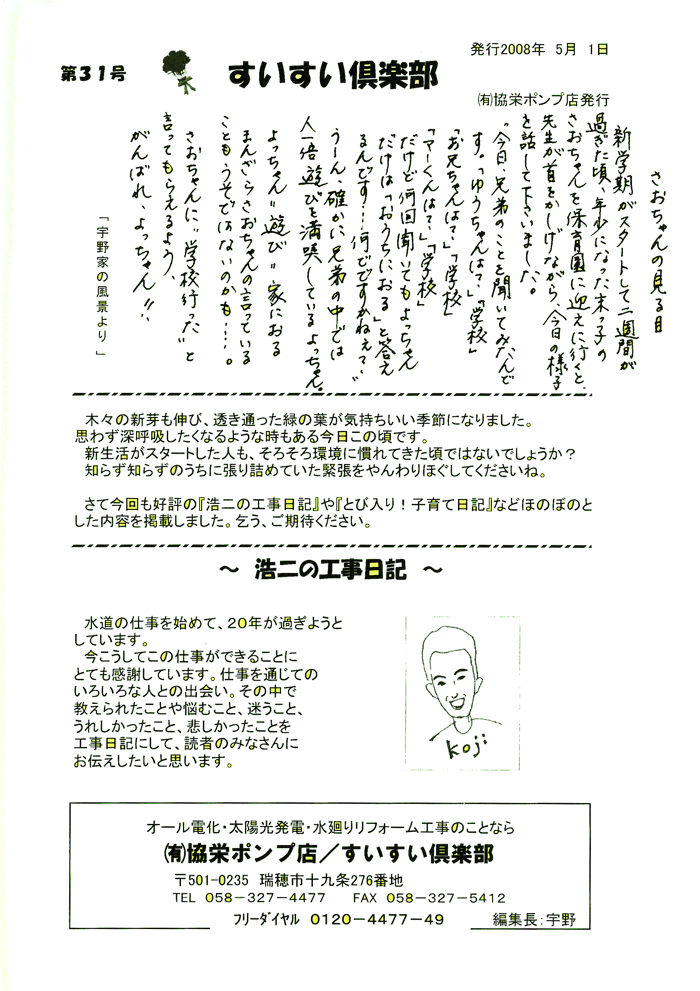 発行2008年 5月 1日
第31号
すいすい倶楽部
㈲協栄ポンプ店発行
さおちゃんの見る目
新学期がスタートして二週間が
過ぎた頃、年少になった末っ子の
さおちゃんを保育園に迎えに行くと、
先生が首をかしげながら、今日の様子
を話して下さいました。
"今日、兄弟のことを聞いてみたんで
す。「ゆうちゃんは？」「学校」
「お兄ちゃんは？」「学校」
「アーくんは？」「学校」
だけど何回聞いてもよっちゃん
だけは「おうちにおる」と答え
るんです…何でですかねぇ？"
うーん、確かに兄弟の中では
人一倍遊びを満喫しているよっちゃん。
よっちゃん〃遊び〃家におる
まんざらさおちゃんの言っている
こともうそではないのかも…。
さおちゃんに、"学校行った"と
言ってもらえるよう、
がんばれ、よっちゃん!!
「宇野家の風景より」
木々の新芽も伸び、透き通った緑の葉が気持ちいい季節になりました。
思わず深呼吸したくなるような時もある今日この頃です。
新生活がスタートした人も、そろそろ環境に慣れてきた頃ではないでしょうか？
知らず知らずのうちに張り詰めていた緊張をやんわりほぐしてくださいね。
さて今回も好評の『浩二の工事日記』や『とび入り！子育て日記』などほのぼのと
した内容を掲載しました。乞う、ご期待ください。
～ 浩二の工事日記 ～
水道の仕事を始めて、20年が過ぎようと
しています。
今こうしてこの仕事ができることに
とても感謝しています。仕事を通じての
いろいろな人との出会い。その中で
教えられたことや悩むこと、迷うこと、
うれしかったこと、悲しかったことを
工事日記にして、読者のみなさんに
お伝えしたいと思います。
koji
オール電化・太陽光発電・水廻りリフォーム工事のことなら
㈲協栄ポンプ店／すいすい倶楽部
〒501-0235 瑞穂市十九条276番地
TEL 058-327-4477 FAX 058-327-5412
フリーダイヤル 0120-4477-49 編集長：宇野